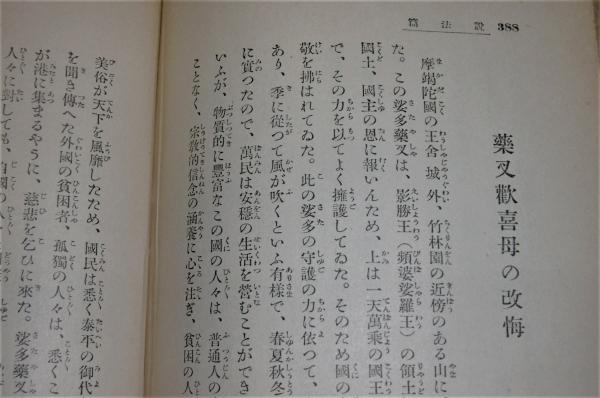 説法篇 388
藥叉歡喜母の改悔
摩竭陀國の王舍城外、竹林園の近傍のある山に
た。この娑多藥叉は、影勝王(頻婆娑羅王)の領土
國土、國主の恩に報いんため、上は一天萬乘の國王
で、その力を以てよく擁護してゐた。そのため國の
敬を拂はれてゐた。此の娑多の守護の力に依つて、
あり、季に從つて風が吹くといふ有樣で、春夏秋冬
に實つたので、萬民は安穩の生活を營むことができ
いふが、物質的に豐富なこの國の人々は、普通人の
ことなく、宗敎的信念の涵養に心を注ぎ、貧困の人
美俗が天下を風靡したため、國民は悉く泰平の御代
を聞き傳へた外國の貧困者、孤獨の人々は、悉くこ
が港に集まるやうに、慈悲を乞ひに來た。娑多藥叉
人々に對しても、自國の人